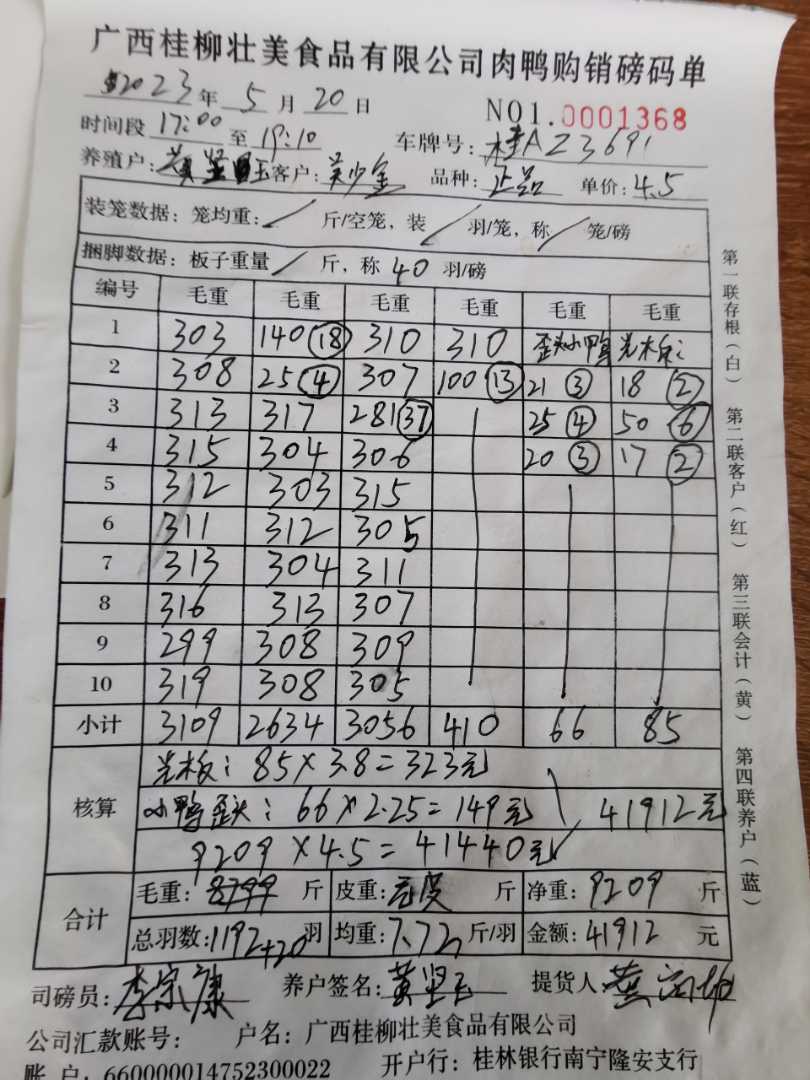 广西桂柳壮美食品有限公司肉鸭购销磅码单
2023年5月20日 NO1.0001368
时间段17:00至19:10 车牌号:桂AZ3691
养殖户:黄坚玉 客户:吴少金 品种:正品 单价:4.5
装笼数据:笼均重:/斤/空笼,装/羽/笼,称/笼/磅
捆脚数据:板子重量/斤,称40羽/磅
编号 毛重 毛重 毛重 毛重 毛重 毛重
1 303 140⑱ 310 310 歪头小鸭 光木板:
2 308 25④ 307 100⑬ 21③ 18②
3 313 317 281㊲ 25④ 50⑥
4 315 304 306 20③ 17②
5 312 303 315
6 311 312 305
7 313 304 311
8 316 313 307
9 299 308 309
10 319 308 305
小计 3109 2634 3056 410 66 85
核算
光木板:85×3.8=323元
小鸭歪头:66×2.25=149元 41912元
9209×4.5=41440元
合计
毛重:8799斤 皮重:斤 净重:9209斤
总羽数:1192+20羽 均重:7.72斤/羽 金额:41912元
司磅员:李宗康 养户签名:黄坚玉 提货人:黄
公司汇款账号: 户名:广西桂柳壮美食品有限公司
账户:660000014752300022 开户行:桂林银行南宁隆安支行
第一联存根(白) 第二联客户(红) 第三联会计(黄) 第四联养户(蓝)